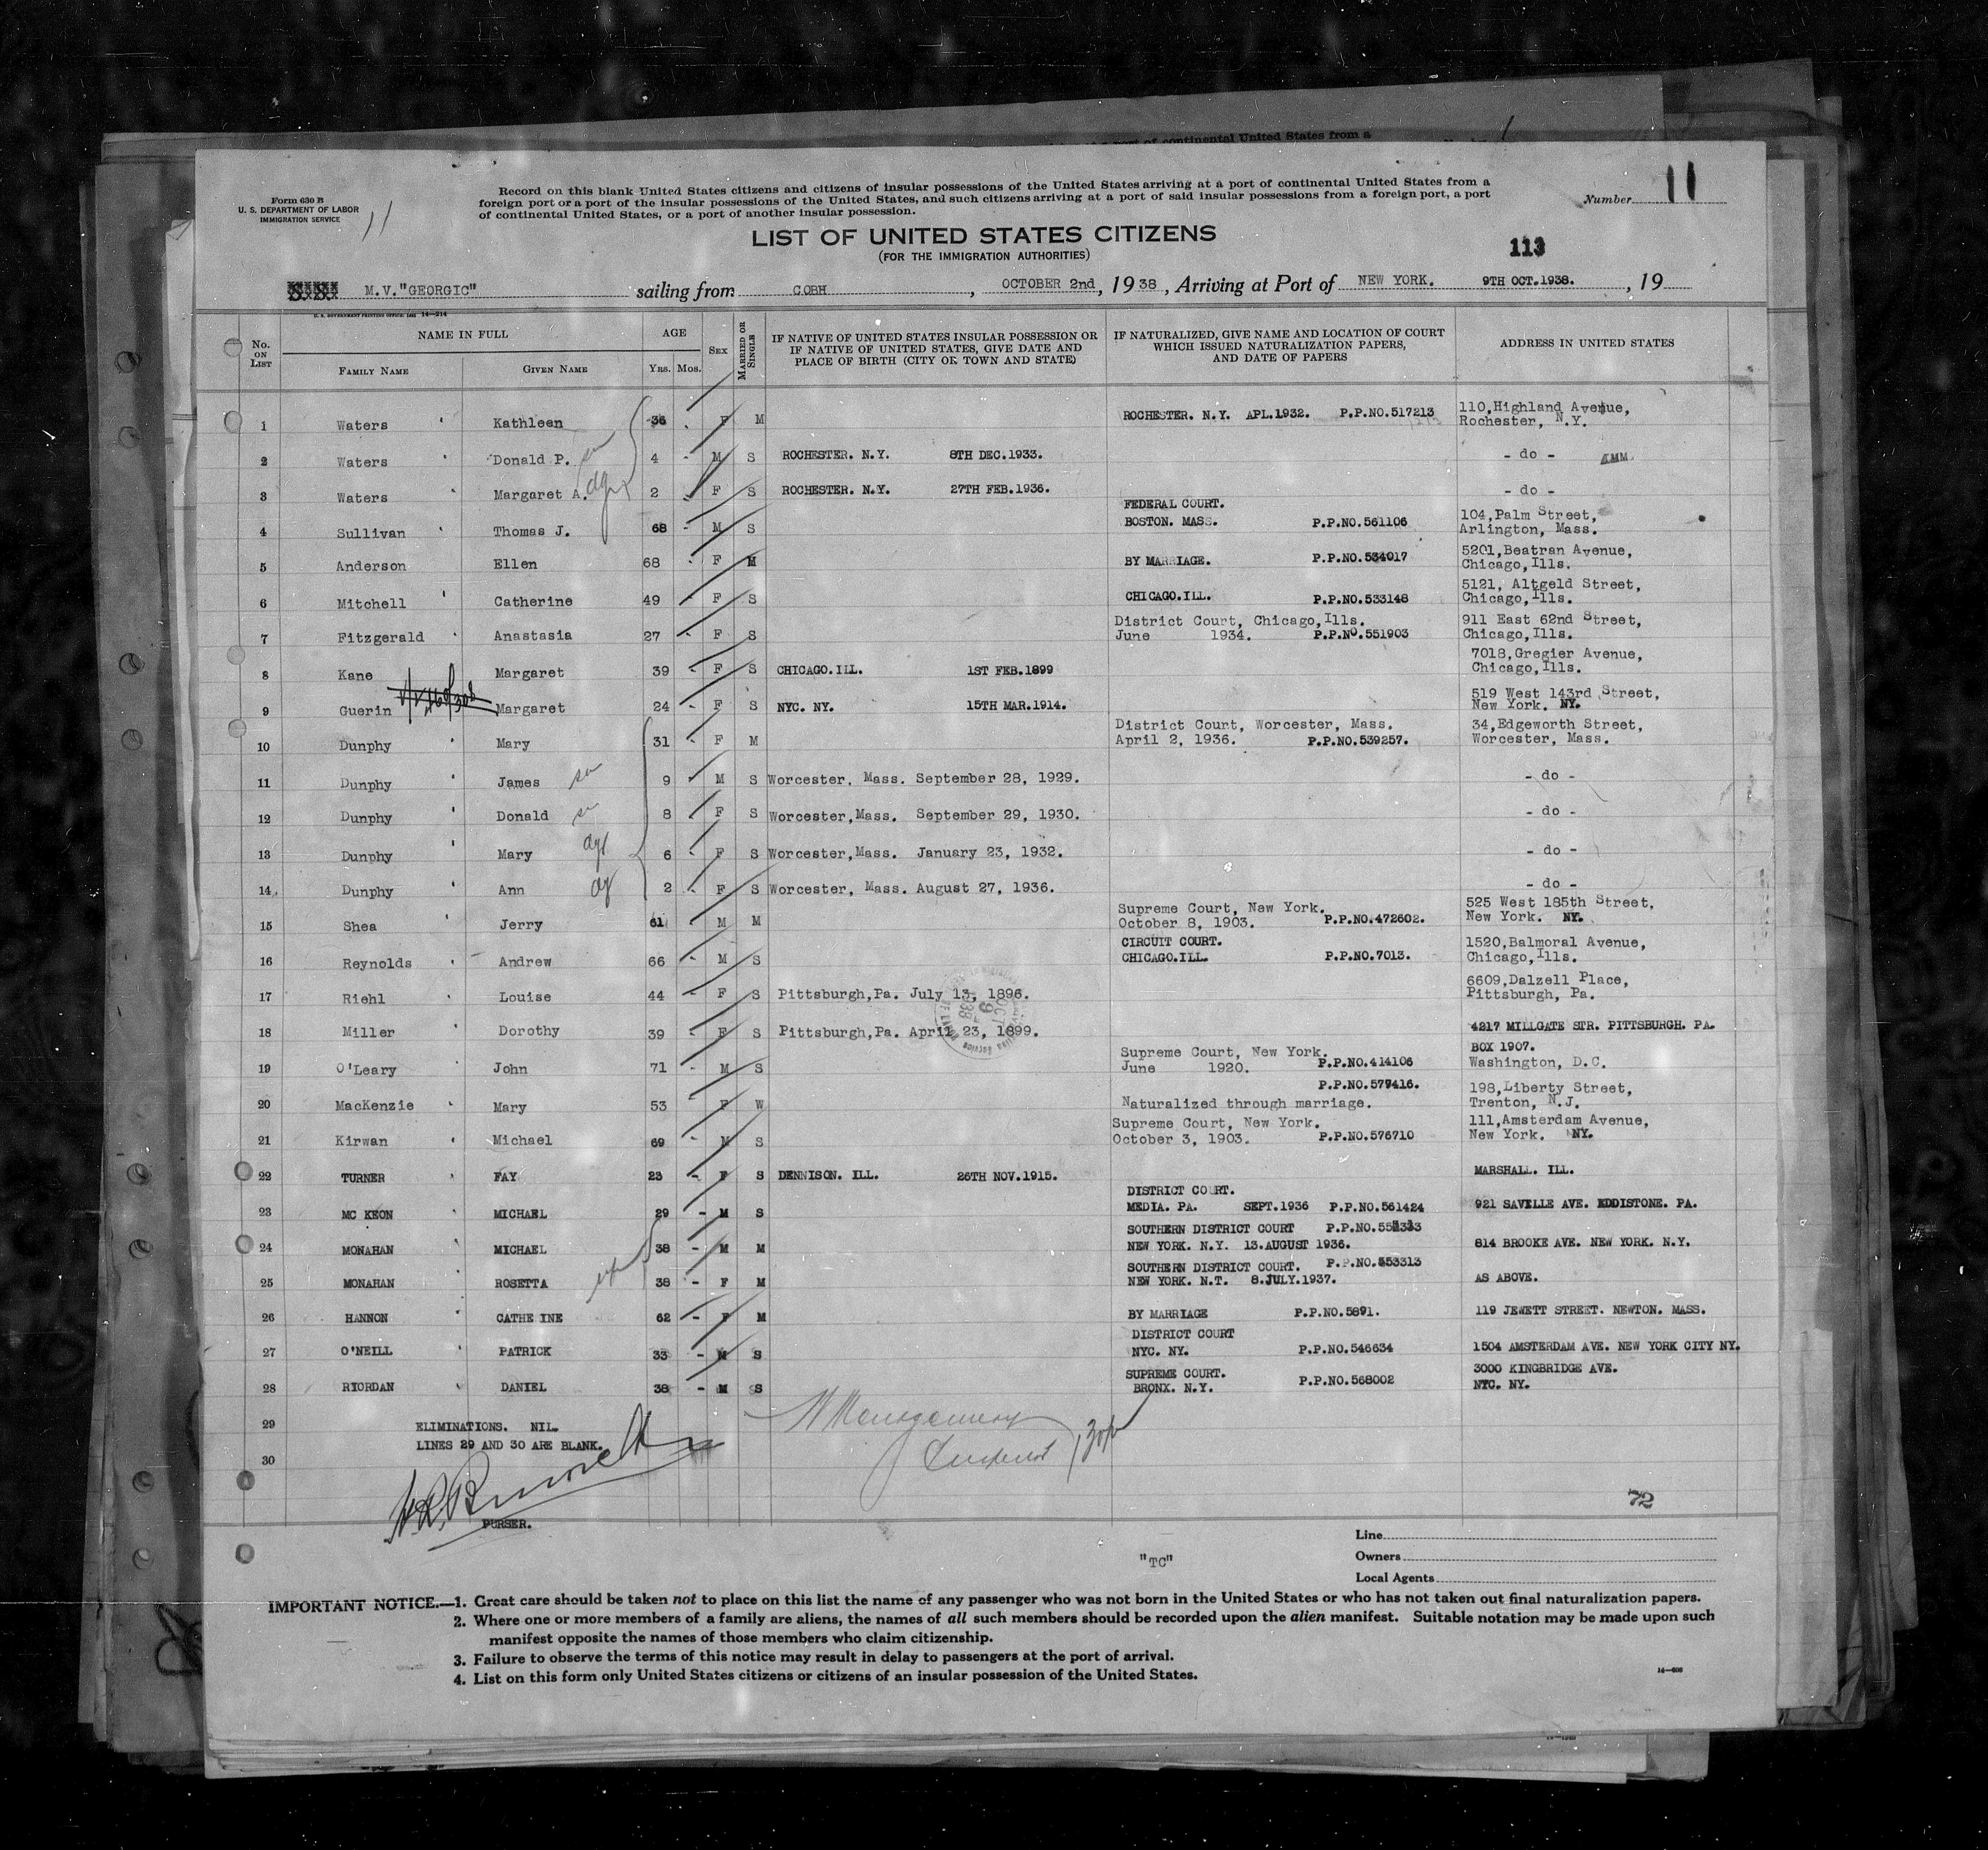 port of continental United States from a
Form 630 B
U. S. DEPARTMENT OF LABOR
IMMIGRATION SERVICE
11
Record on this blank United States citizens and citizens of insular possessions of the United States arriving at a port of continental United States from a
foreign port or a port of the insular possessions of the United States, and such citizens arriving at a port of said insular possessions from a foreign port, a port
of continental United States, or a port of another insular possession.
Number 11
LIST OF UNITED STATES CITIZENS
(FOR THE IMMIGRATION AUTHORITIES)
113
M.V."GEORGIC" sailing from COBH, OCTOBER 2nd, 1938, Arriving at Port of NEW YORK. 9TH OCT.1938., 19
U. S. GOVERNMENT PRINTING OFFICE: 14—214
No. ON LIST NAME IN FULL FAMILY NAME GIVEN NAME AGE YRS. MOS. SEX MARRIED OR SINGLE
IF NATIVE OF UNITED STATES INSULAR POSSESSION OR
IF NATIVE OF UNITED STATES, GIVE DATE AND
PLACE OF BIRTH (CITY OR TOWN AND STATE)
IF NATURALIZED, GIVE NAME AND LOCATION OF COURT
WHICH ISSUED NATURALIZATION PAPERS,
AND DATE OF PAPERS
ADDRESS IN UNITED STATES
1 Waters Kathleen 36 F M ROCHESTER. N.Y. APL.1932. P.P.NO.517213 110,Highland Avenue, Rochester, N.Y.
2 Waters Donald P. 4 - M S ROCHESTER. N.Y. 8TH DEC.1933. - do -
3 Waters Margaret A. 2 F S ROCHESTER. N.Y. 27TH FEB.1936. - do -
4 Sullivan Thomas J. 68 - M S FEDERAL COURT. BOSTON. MASS. P.P.NO.561106 104,Palm Street, Arlington, Mass.
5 Anderson Ellen 68 - F M BY MARRIAGE. P.P.NO.534917 5201,Beatran Avenue, Chicago,Ills.
6 Mitchell Catherine 49 F S CHICAGO.ILL. P.P.NO.533148 5121, Altgeld Street, Chicago,Ills.
7 Fitzgerald Anastasia 27 - F S District Court, Chicago,Ills. June 1934. P.P.NO.551903 911 East 62nd Street, Chicago,Ills.
8 Kane Margaret 39 - F S CHICAGO.ILL. 1ST FEB.1899 7018,Gregier Avenue, Chicago,Ills.
9 Guerin Margaret 24 - F S NYC. NY. 15TH MAR.1914. 519 West 143rd Street, New York. NY.
10 Dunphy Mary 31 - F M District Court, Worcester, Mass. April 2, 1936. P.P.NO.539257. 34,Edgeworth Street, Worcester, Mass.
11 Dunphy James 9 M S Worcester, Mass. September 28, 1929. - do -
12 Dunphy Donald 8 F S Worcester,Mass. September 29, 1930. - do -
13 Dunphy Mary 6 F S Worcester,Mass. January 23, 1932. - do -
14 Dunphy Ann 2 F S Worcester, Mass. August 27, 1936. - do -
15 Shea Jerry 61 M M Supreme Court, New York. October 8, 1903. P.P.NO.472602. 525 West 185th Street, New York. NY.
16 Reynolds Andrew 66 - M S CIRCUIT COURT. CHICAGO.ILL. P.P.NO.7013. 1520,Balmoral Avenue, Chicago,Ills.
17 Riehl Louise 44 - F S Pittsburgh,Pa. July 13, 1896. 6609,Dalzell Place, Pittsburgh, Pa.
18 Miller Dorothy 39 - F S Pittsburgh,Pa. April 23, 1899. 4217 MILLGATE STR. PITTSBURGH. PA.
19 O'Leary John 71 - M S Supreme Court, New York. June 1920. P.P.NO.414106 BOX 1907. Washington, D.C.
20 MacKenzie Mary 53 F W P.P.NO.579416. Naturalized through marriage. 198,Liberty Street, Trenton, N.J.
21 Kirwan Michael 69 - M S Supreme Court, New York. October 3, 1903. P.P.NO.576710 111,Amsterdam Avenue, New York. NY.
22 TURNER FAY 23 - F S DENNISON. ILL. 26TH NOV.1915. MARSHALL. ILL.
23 MC KEON MICHAEL 29 - M S DISTRICT COURT. MEDIA. PA. SEPT.1936 P.P.NO.561424 921 SAVILLE AVE. EDDISTONE. PA.
24 MONAHAN MICHAEL 38 - M M SOUTHERN DISTRICT COURT NEW YORK. N.Y. 13.AUGUST 1936. 814 BROOKE AVE. NEW YORK. N.Y.
25 MONAHAN ROSETTA 38 - F M SOUTHERN DISTRICT COURT. P.P.NO.553313 NEW YORK. N.T. 8.JULY.1937. AS ABOVE.
26 HANNON CATHE INE 62 - F M BY MARRIAGE P.P.NO.5891. 119 JEWETT STREET. NEWTON. MASS.
27 O'NEILL PATRICK 33 - M S DISTRICT COURT NYC. NY. P.P.NO.546634 1504 AMSTERDAM AVE. NEW YORK CITY NY.
28 RIORDAN DANIEL 38 - M S SUPREME COURT. BRONX. N.Y. P.P.NO.568002 3000 KINGBRIDGE AVE. NYC. NY.
29 ELIMINATIONS. NIL.
LINES 29 AND 30 ARE BLANK.
30
PURSER.
72
"TC"
Line
Owners
Local Agents
IMPORTANT NOTICE.—1. Great care should be taken not to place on this list the name of any passenger who was not born in the United States or who has not taken out final naturalization papers.
2. Where one or more members of a family are aliens, the names of all such members should be recorded upon the alien manifest. Suitable notation may be made upon such
manifest opposite the names of those members who claim citizenship.
3. Failure to observe the terms of this notice may result in delay to passengers at the port of arrival.
4. List on this form only United States citizens or citizens of an insular possession of the United States.
14—606